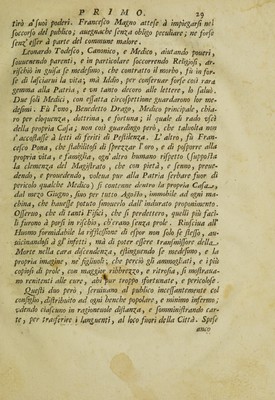 PRIMO. 29
tirò a' suoi poderi. Francesco Magno attese à impiegarsi nel
soccorso del publico; auegnache senza obligo peculiare; ne forse
senz' esser à parte del commune malore.
Leonardo Todesco, Canonico, e Medico, aiutando poueri,
souuenendo parenti, e in particolare soccorrendo Religiosi, ar-
rischiò in guisa se medesimo, che contratto il morbo, fù in for-
se di lasciarui la vita; mà Iddio, per conseruar forse così rara
gemma alla Patria, e vn tanto decoro alle lettere, lo saluò.
Due soli Medici, con esatta circospettione guardarono sue me-
desimi. Fù l'vno, Benedetto Drago, Medico principale, chia-
ro per eloquenza, dottrina, e fortuna; il quale di rado vscì
della propria Casa, non così guardingo però, che taluolta non
s' accostasse à letti di feriti di Pestilenza. L' altro, fù Fran-
cesco Pona, che stabilitosi di sprezzar l'oro, e di posporre alla
propria vita, e famiglia, ogn' altro humano rispetto (supposta
la clemenza del Magistrato, che con pietà, e senno, preue-
dendo, e prouedendo, voleua pur alla Patria serbare fuor di
pericolo qualche Medico) si contenne dentro la propria Casa,
dal mezo Giugno, fino per tutto Agosto, immobile ad ogni mac-
china, che hauesse potuto smouerlo dall' indurato proponimento.
Osseruò, che di tanti Fisici, che si perdettero, quelli più faci-
li furono à porsi in rischio, ch'erano senza prole. Riusciua all'
Huomo formidabile la riflessione di espor non solo se stesso, au-
uicinandosi à gl' infetti, mà di poter essere transmissore della
Morte nella cara discendenza, estinguendo se medesimo, e la
propria imagine, ne' figliuoli; che perciò gli ammogliati, e i più
copiosi di prole, con maggior ribbrezzo, e ritrosia, si mostraua-
no renitenti alle cure, ahi pur troppo sfortunate, e pericolose.
Questi due però, seruiuano al publico incessantemente col
consiglio, distribuito ad ogni benche popolare, e minimo infermo;
vdendo ciascuno in ragioneuole distanza, e somministrando car-
te, per trasferire i languenti, al loco fuori della Città. Spese
anco